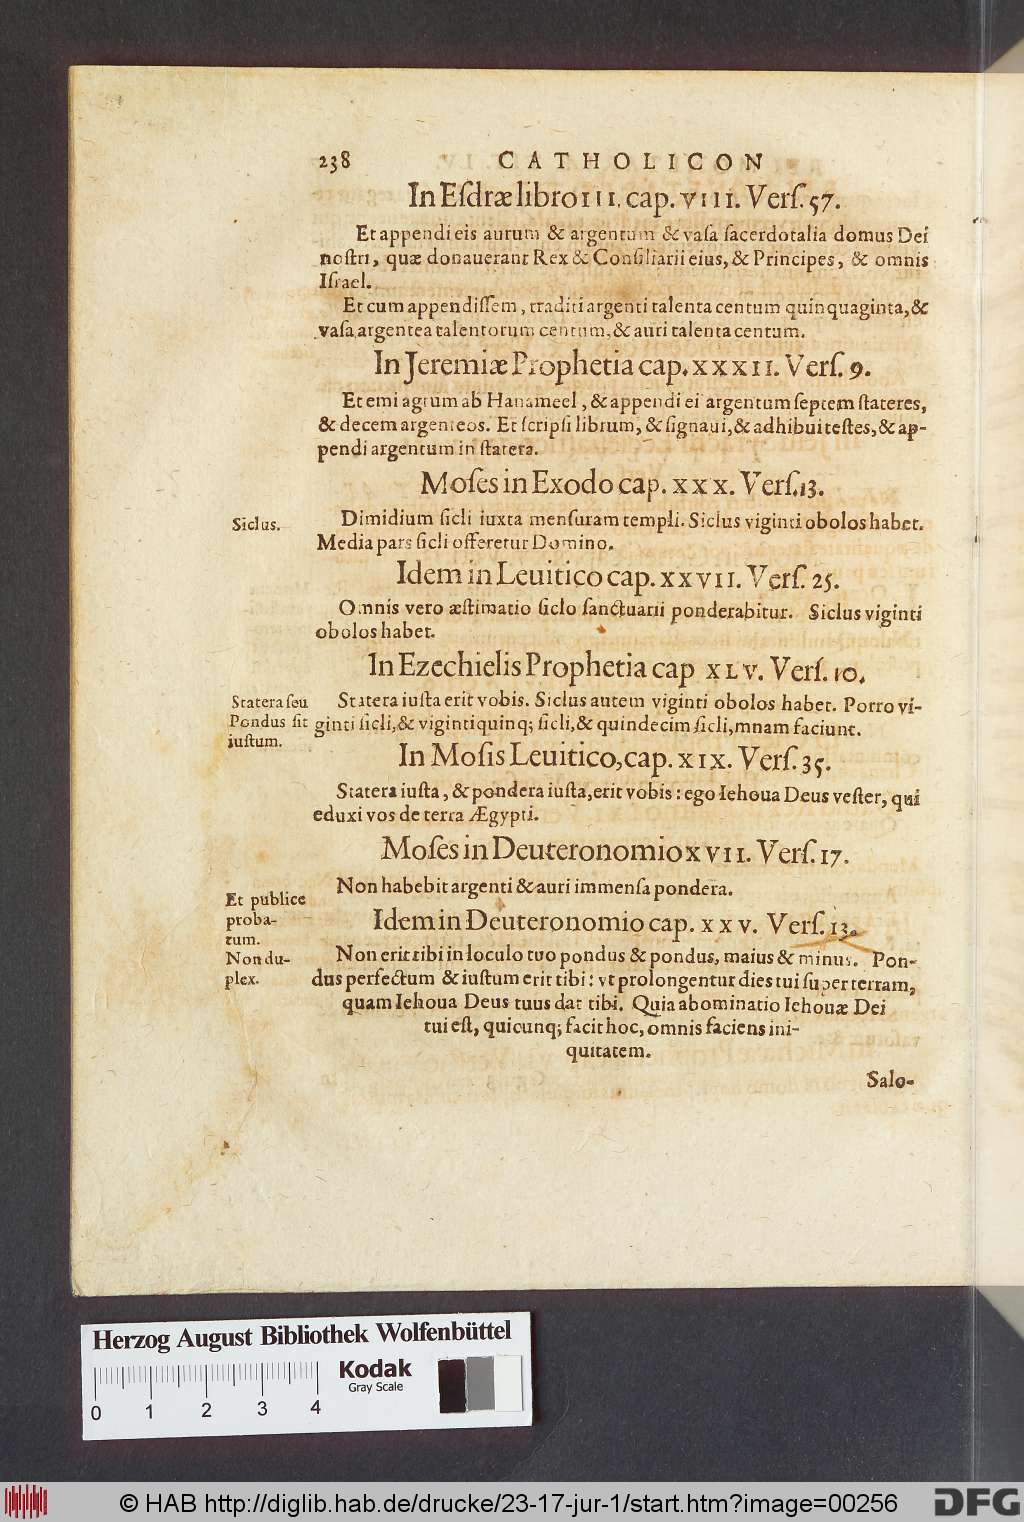 238 CATHOLICON
In Eſdræ libro III. cap. VIII. Verſ. 57.
Et appendi eis aurum & argentum & vaſa ſacerdotalia domus Dei
noſtri, quæ donauerant Rex & Conſiliarii eius, & Principes, & omnis
Iſrael.
Et cum appendiſſem, traditi argenti talenta centum quinquaginta, &
vaſa argentea talentorum centum, & auri talenta centum.
In Jeremiæ Prophetia cap. XXXII. Verſ. 9.
Et emi agrum ab Hanameel, & appendi ei argentum ſeptem ſtateres,
& decem argenteos. Et ſcripſi librum, & ſignaui, & adhibui teſtes, & ap-
pendi argentum in ſtatera.
Moſes in Exodo cap. XXX. Verſ. 13.
Siclus.
Dimidium ſicli iuxta menſuram templi. Siclus viginti obolos habet.
Media pars ſicli offeretur Domino.
Idem in Leuitico cap. XXVII. Verſ. 25.
Omnis vero æſtimatio ſiclo ſanctuarii ponderabitur. Siclus viginti
obolos habet.
In Ezechielis Prophetia cap XLV. Verſ. 10.
Statera ſeu
Pondus ſit
iuſtum.
Statera iuſta erit vobis. Siclus autem viginti obolos habet. Porro vi-
ginti ſicli, & vigintiquinq; ſicli, & quindecim ſicli, mnam faciunt.
In Moſis Leuitico, cap. XIX. Verſ. 35.
Statera iuſta, & pondera iuſta, erit vobis: ego Iehoua Deus veſter, qui
eduxi vos de terra Ægypti.
Moſes in Deuteronomio XVII. Verſ. 17.
Non habebit argenti & auri immenſa pondera.
Et publice
proba-
tum.
Non du-
plex.
Idem in Deuteronomio cap. XXV. Verſ. 13.
Non erit tibi in loculo tuo pondus & pondus, maius & minus. Pon-
dus perfectum & iuſtum erit tibi: vt prolongentur dies tui ſuper terram,
quam Iehoua Deus tuus dat tibi. Quia abominatio Iehouæ Dei
tui eſt, quicunq; facit hoc, omnis faciens ini-
quitatem.
Salo-
Herzog August Bibliothek Wolfenbüttel
Kodak
Gray Scale
0 1 2 3 4
© HAB http://diglib.hab.de/drucke/23-17-jur-1/start.htm?image=00256
DFG